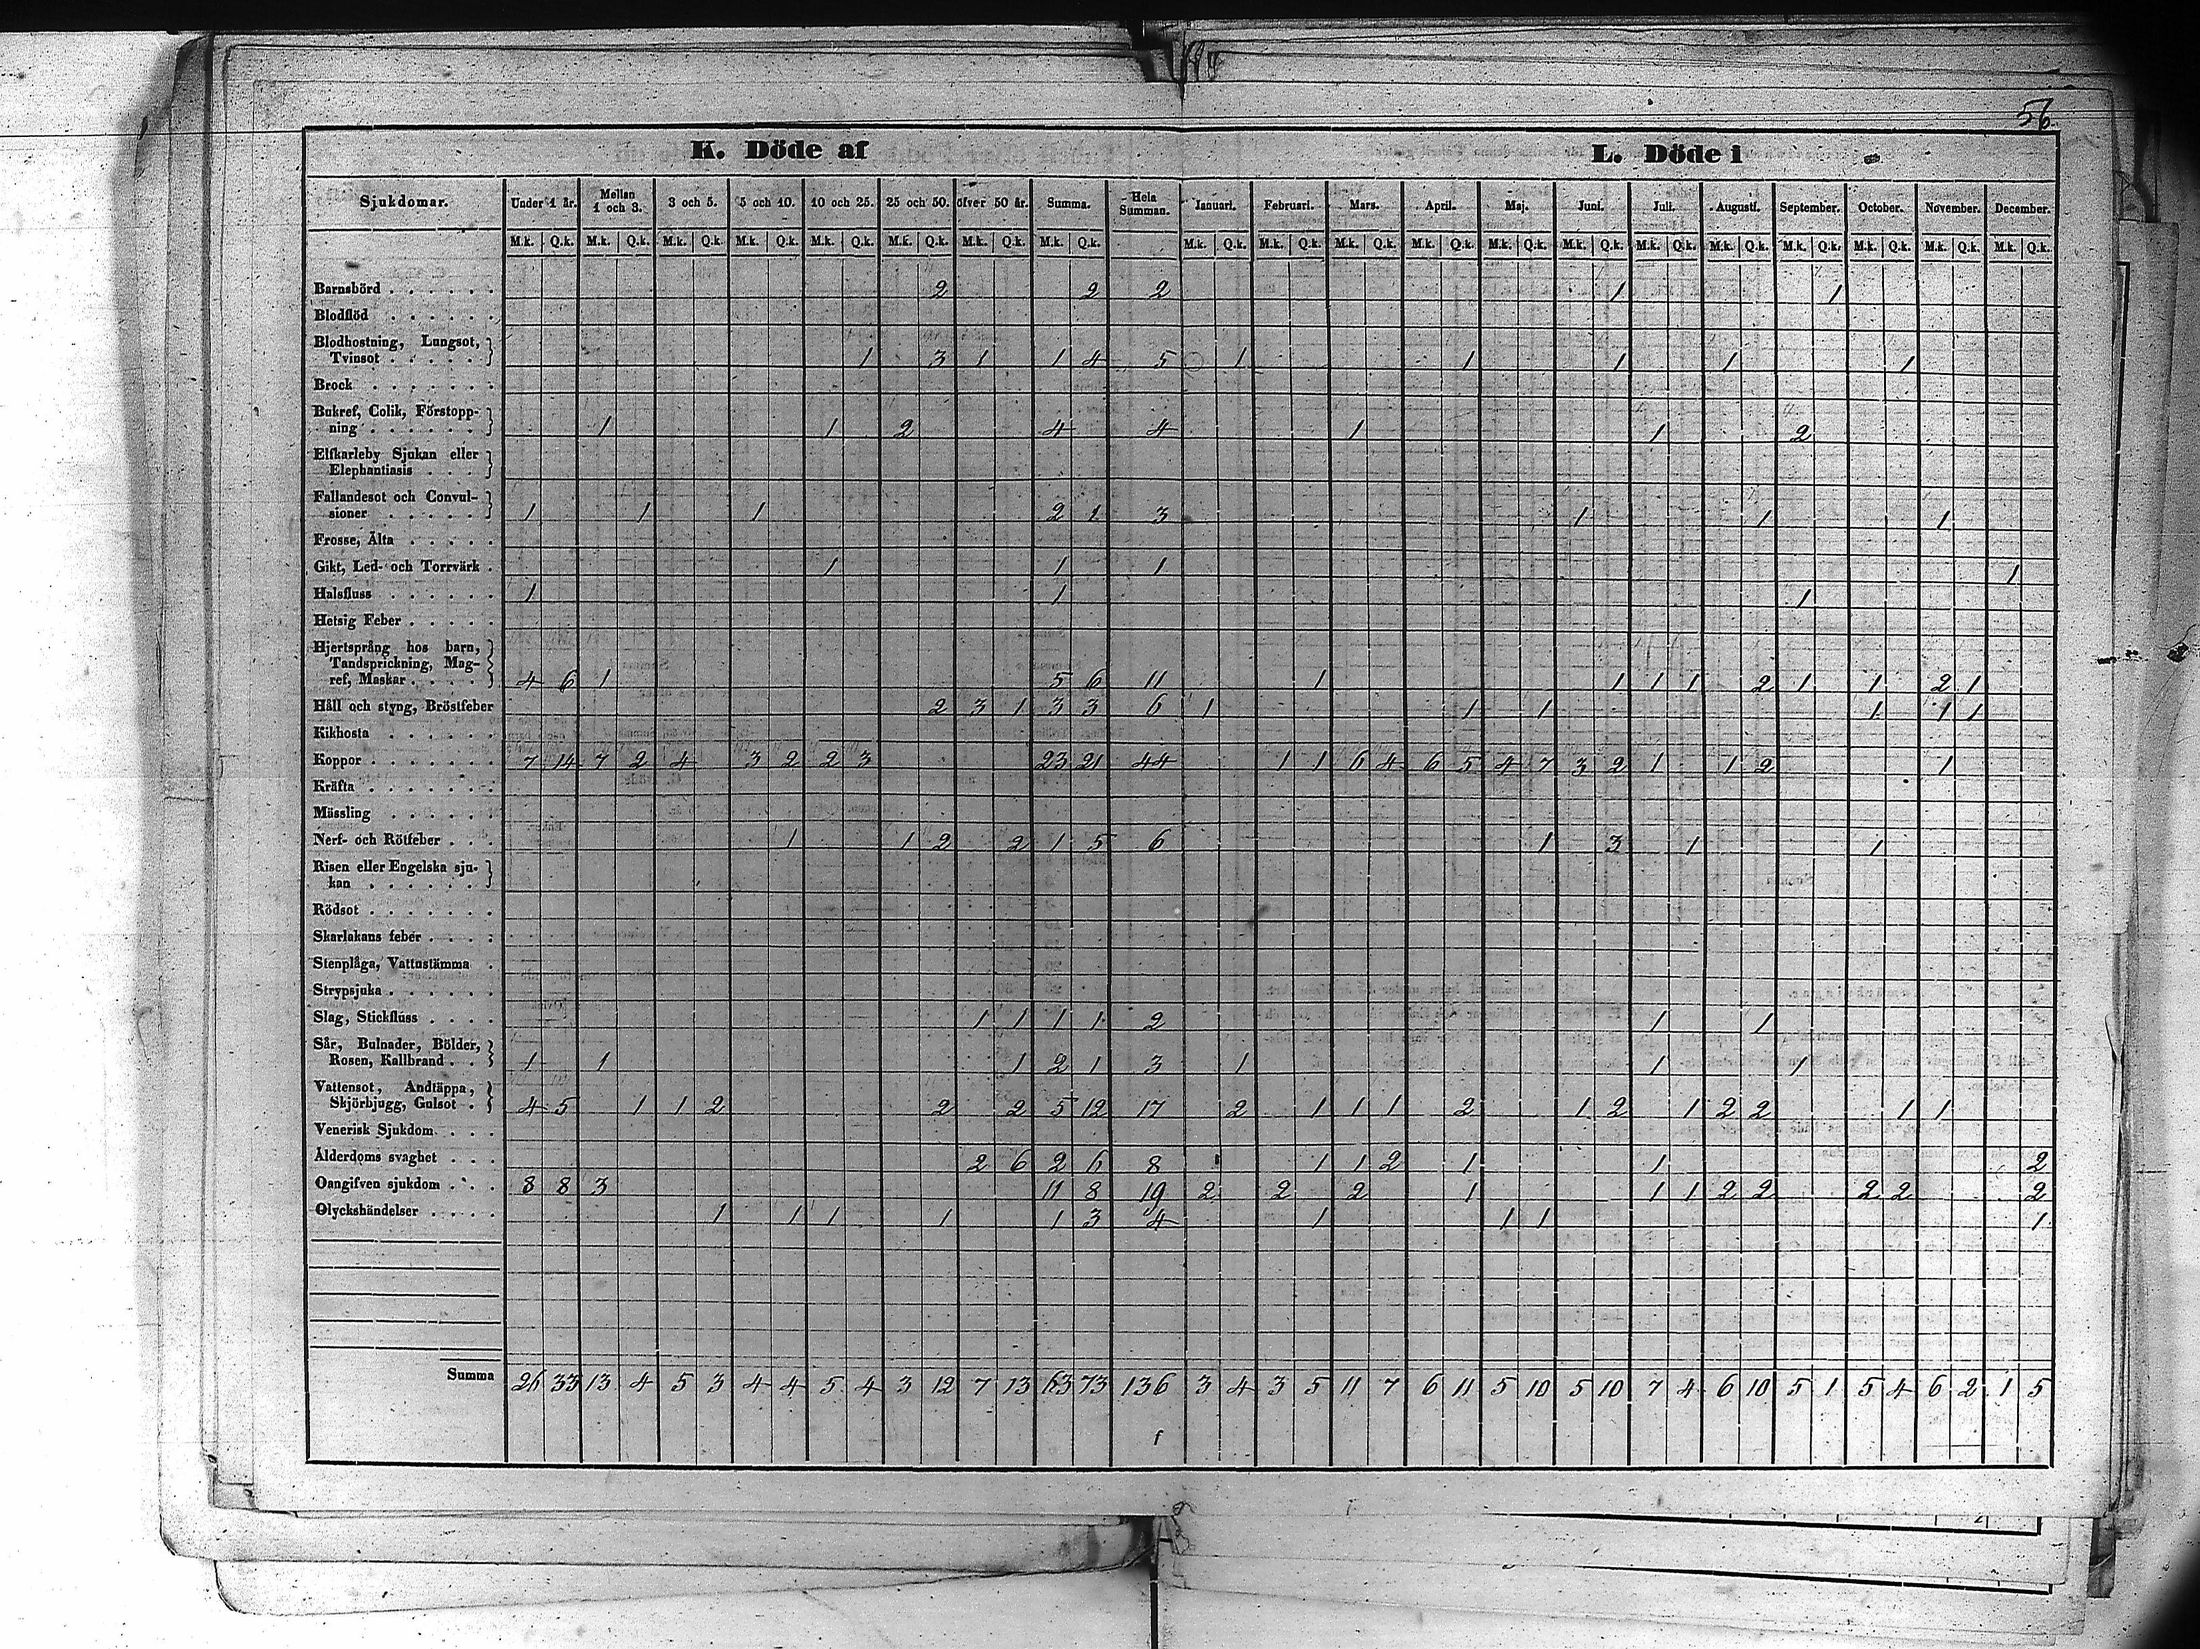 56
K. Döde af L. Döde i
Sjukdomar. Under 1 år. Mellan 1 och 3. 3 och 5. 5 och 10. 10 och 25. 25 och 50. öfver 50 år. Summa. Hela Summan. Januari. Februari. Mars. April. Maj. Juni. Juli. Augusti. September. October. November. December.
M.k. Q.k. M.k. Q.k. M.k. Q.k. M.k. Q.k. M.k. Q.k. M.k. Q.k. M.k. Q.k. M.k. Q.k. M.k. Q.k. M.k. Q.k. M.k. Q.k. M.k. Q.k. M.k. Q.k. M.k. Q.k. M.k. Q.k. M.k. Q.k. M.k. Q.k. M.k. Q.k. M.k. Q.k. M.k. Q.k.
Barnsbörd . . . . . . 2 2 2 1 1
Blodflöd . . . . . .
Blodhostning, Lungsot,
Tvinsot . . . . . 1 3 1 1 4 5 1 1 1 1 1
Brock . . . . . . .
Bukref, Colik, Förstopp-
ning . . . . . . 1 1 2 4 4 1 1 2
Elfkarleby Sjukan eller
Elephantiasis . . .
Fallandesot och Convul-
sioner . . . . . 1 1 1 2 1 3 1 1 1
Frosse, Älta . . . . .
Gikt, Led- och Torrvärk . 1 1 1 1
Halsfluss . . . . . . 1 1 1
Hetsig Feber . . . . .
Hjertsprång hos barn,
Tandsprickning, Mag-
ref, Maskar . . . . 4 6 1 5 6 11 1 1 1 1 2 1 1 2 1
Håll och styng, Bröstfeber 2 3 1 3 3 6 1 1 1 1 1 1
Kikhosta . . . . . .
Koppor . . . . . . . 7 14 7 2 4 3 2 2 3 23 21 44 1 1 6 4 6 5 4 7 3 2 1 1 2 1
Kräfta . . . . . . .
Mässling . . . . . .
Nerf- och Rötfeber . . . 1 1 2 2 1 5 6 1 3 1 1
Risen eller Engelska sju-
kan . . . . . .
Rödsot . . . . . . .
Skarlakans feber . . . .
Stenplåga, Vattustämma .
Strypsjuka . . . . . .
Slag, Stickfluss . . . . 1 1 1 1 2 1 1
Sår, Bulnader, Bölder,
Rosen, Kallbrand . . 1 1 1 2 1 3 1 1 1
Vattensot, Andtäppa,
Skjörbjugg, Gulsot . 4 5 1 1 2 2 2 5 12 17 2 1 1 1 2 1 2 1 2 2 1 1
Venerisk Sjukdom . . .
Ålderdoms svaghet . . . 2 6 2 6 8 1 1 2 1 1 2
Oangifven sjukdom . . . 8 8 3 11 8 19 2 2 2 1 1 1 2 2 2 2 2
Olyckshändelser . . . . 1 1 1 1 1 3 4 1 1 1 1
Summa 26 33 13 4 5 3 4 4 5 4 3 12 7 13 63 73 136 3 4 3 5 11 7 6 11 5 10 5 10 7 4 6 10 5 1 5 4 6 2 1 5